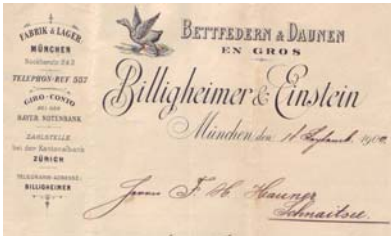 FABRIK & LAGER
MÜNCHEN
TELEPHON-RUF 507
GIRO-CONTO
BEI DER
BAYER. NOTENBANK
ZAHLSTELLE
bei der Kantonalbank
ZÜRICH
TELEGRAMM-ADRESSE:
BILLIGHEIMER
BETTFEDERN & DAUNEN
EN GROS
Billigheimer & Einstein
München, den
Herrn F. H. Hauner
Schnaitsee.